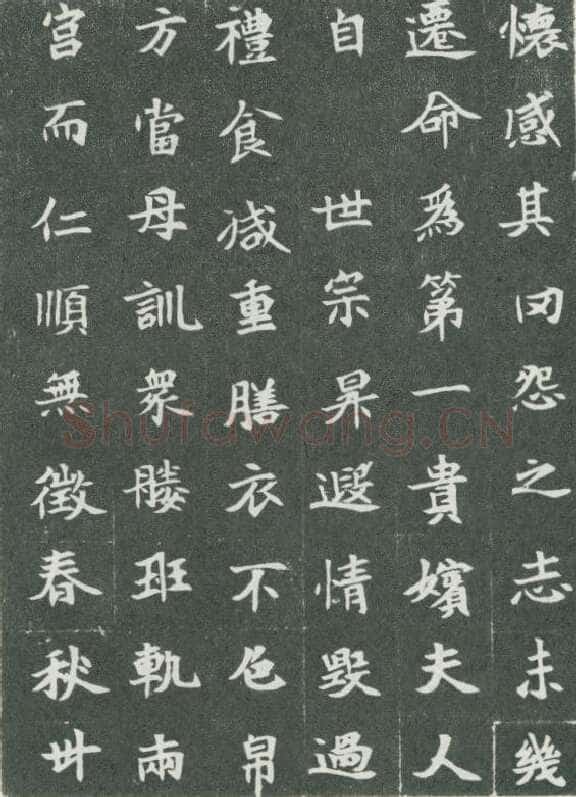 懷感其怨之志未幾
遷命爲第一貴嬪夫人
自 世宗昇遐情毀過
禮食减重膳衣不色帛
方當母訓眾媵班軌兩
宮而仁順無徵春秋卅
Shufawang.CN